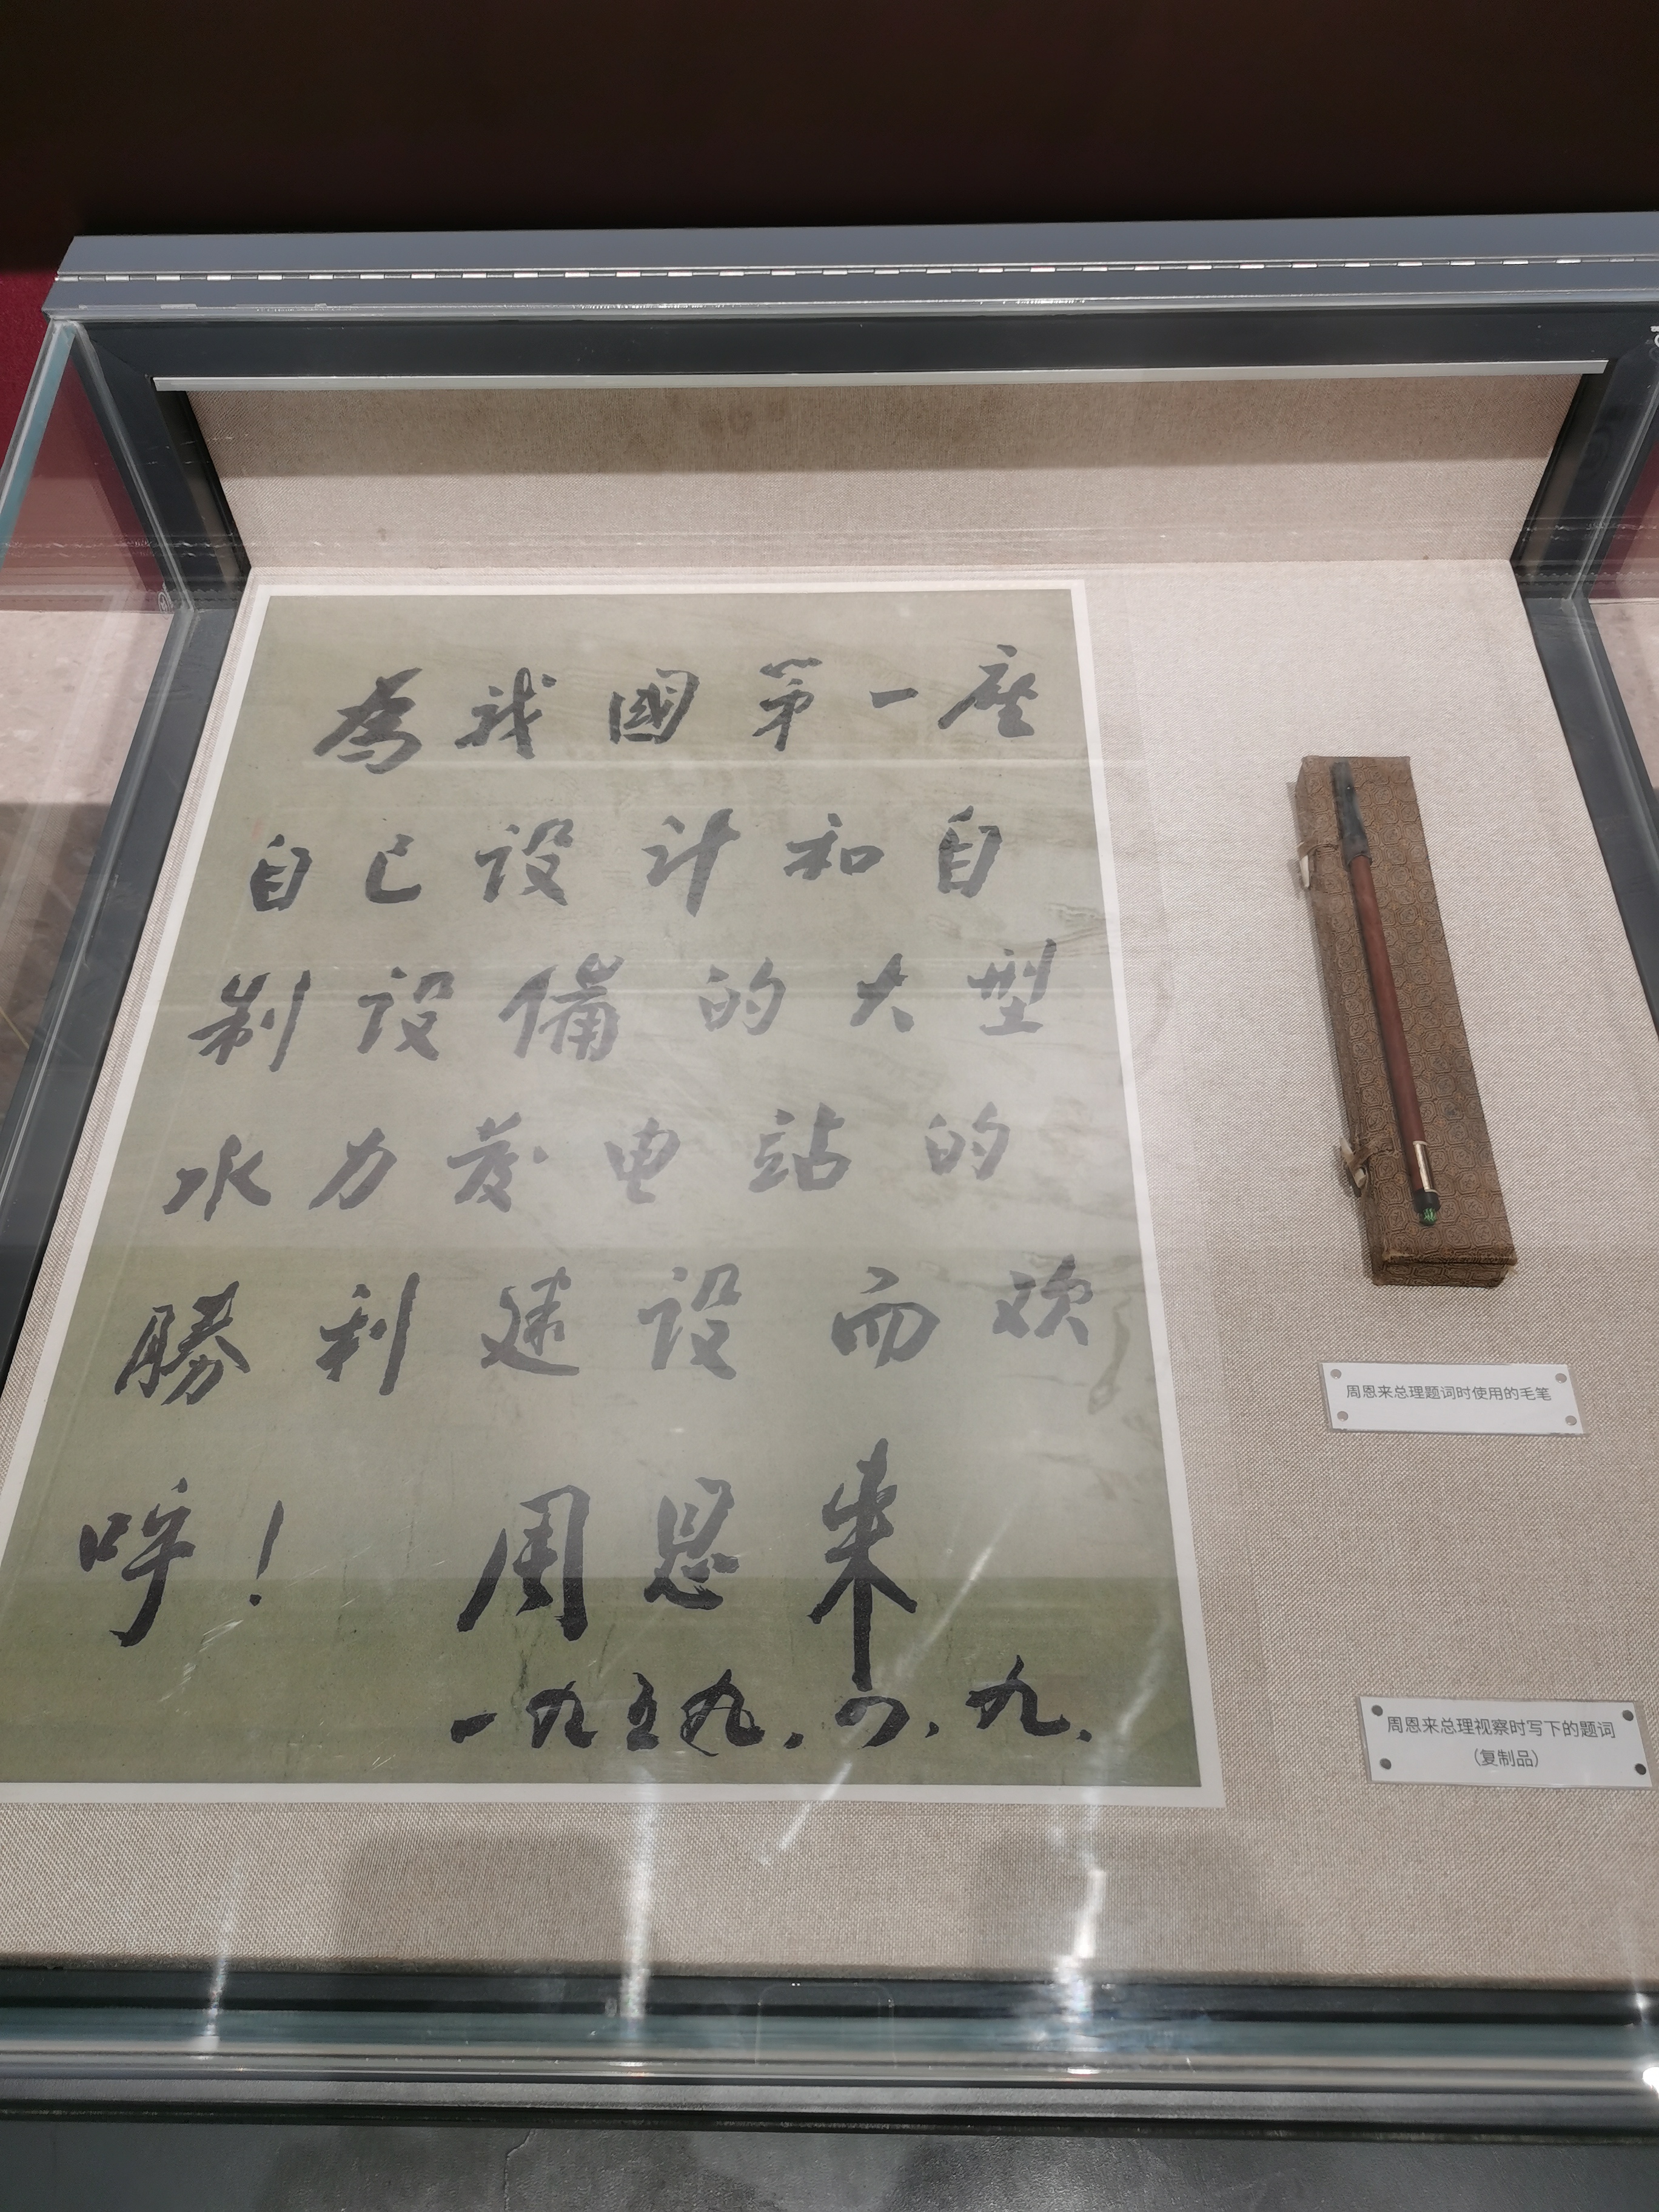 為我國第一座
自己设计和自
制设備的大型
水力发电站的
勝利建设而欢
呼！ 周恩来
一九五九.四.九.
周恩来总理题词时使用的毛笔
周恩来总理视察时写下的题词
(复制品)